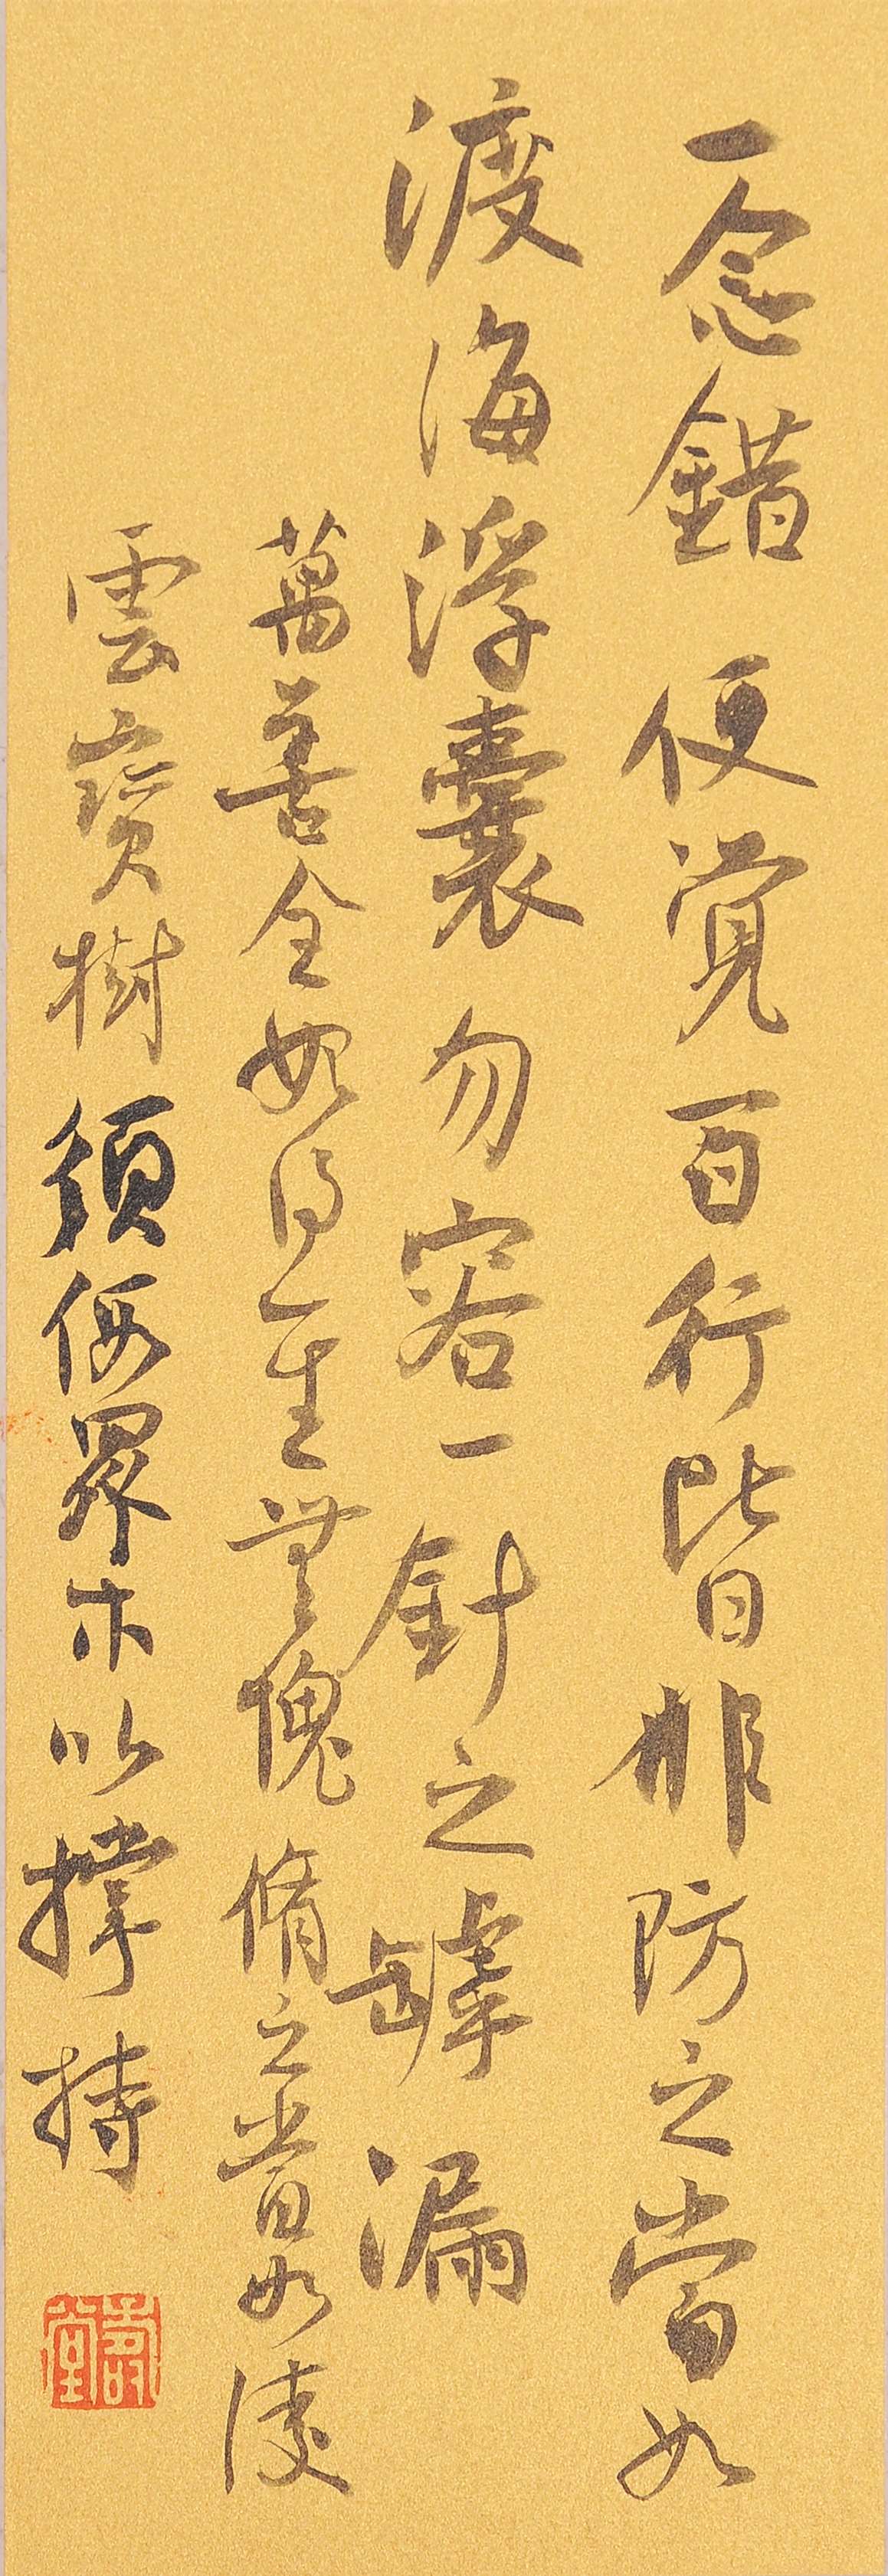 一念錯便覺百行皆非防之當如
渡海浮囊勿容一針之罅漏
萬善全始得一生無愧脩之當如淩
雲寶樹須假眾木以撐持